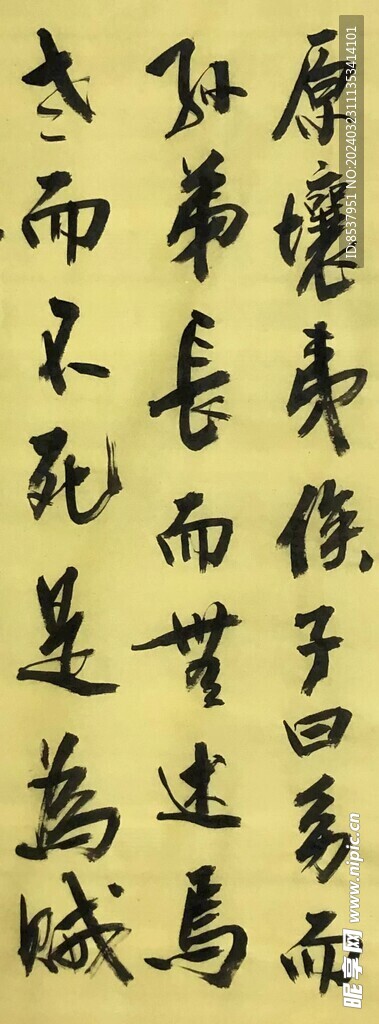 原壤夷俟子曰幼而
孫弟長而無述焉
老而不死是為賊
ID:8537951 NO:20240323111353414101
昵享网 www.nipic.cn